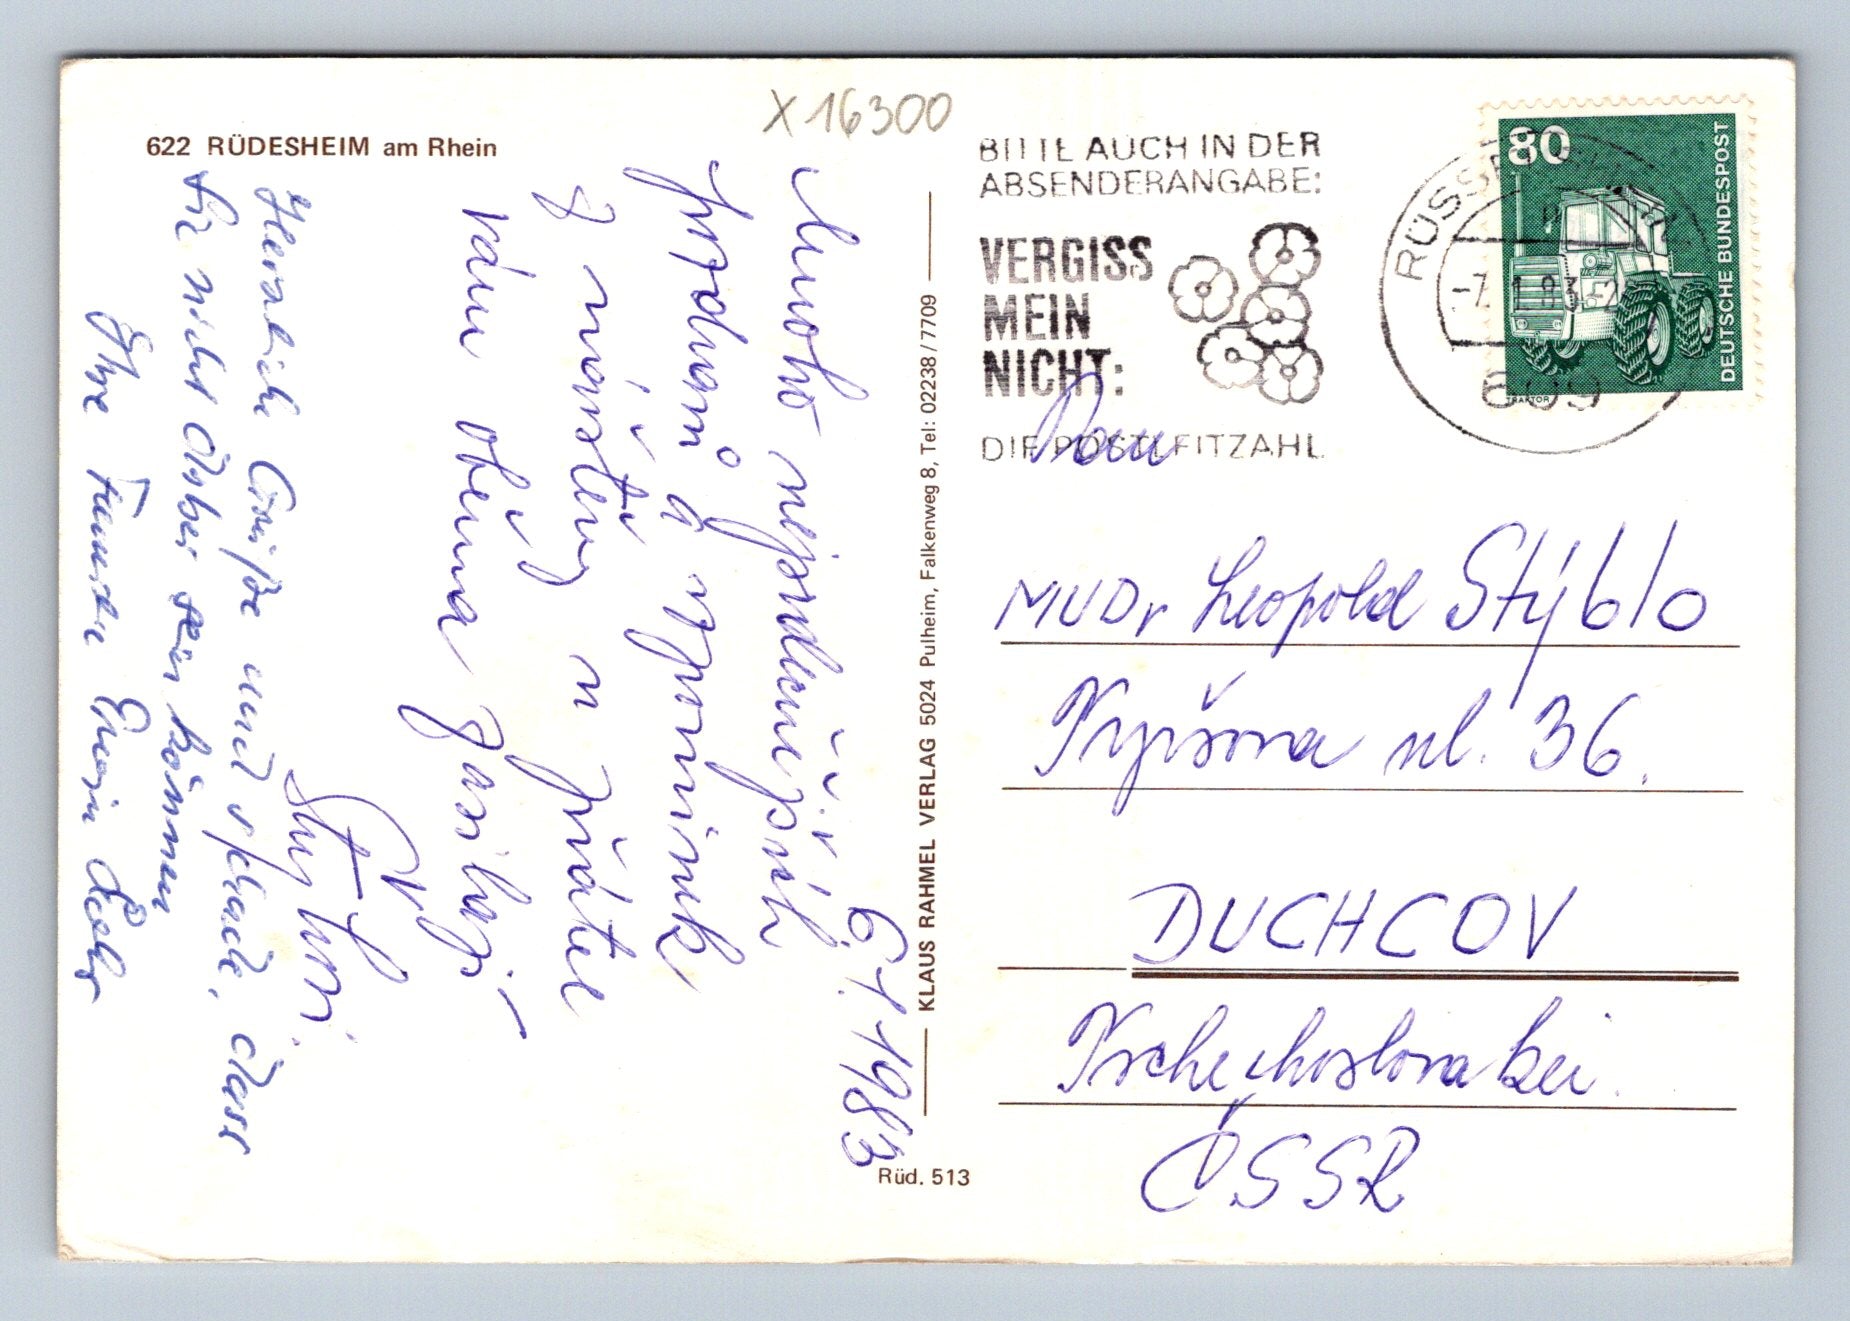 X 16300
622 RÜDESHEIM am Rhein
6.1.1983
Mnoho nejsrdečnějších
pozdravů a vzpomínek
z návštěvy u přátel
vám oběma zasílají
Herzliche Grüße und schade, dass
Sie nicht dabei sein können
Ihre Familie Erwin
KLAUS RAHMEL VERLAG 5024 Pulheim, Falkenweg 8, Tel: 02238/7709
Rüd. 513
BITTE AUCH IN DER
ABSENDERANGABE:
VERGISS
MEIN
NICHT:
DIE POSTLEITZAHL
80
DEUTSCHE BUNDESPOST
TRAKTOR
-7.1.83
609
Pan
MUDr Leopold Stýblo
ul. 36.
DUCHCOV
Tschechoslovakei.
ČSSR